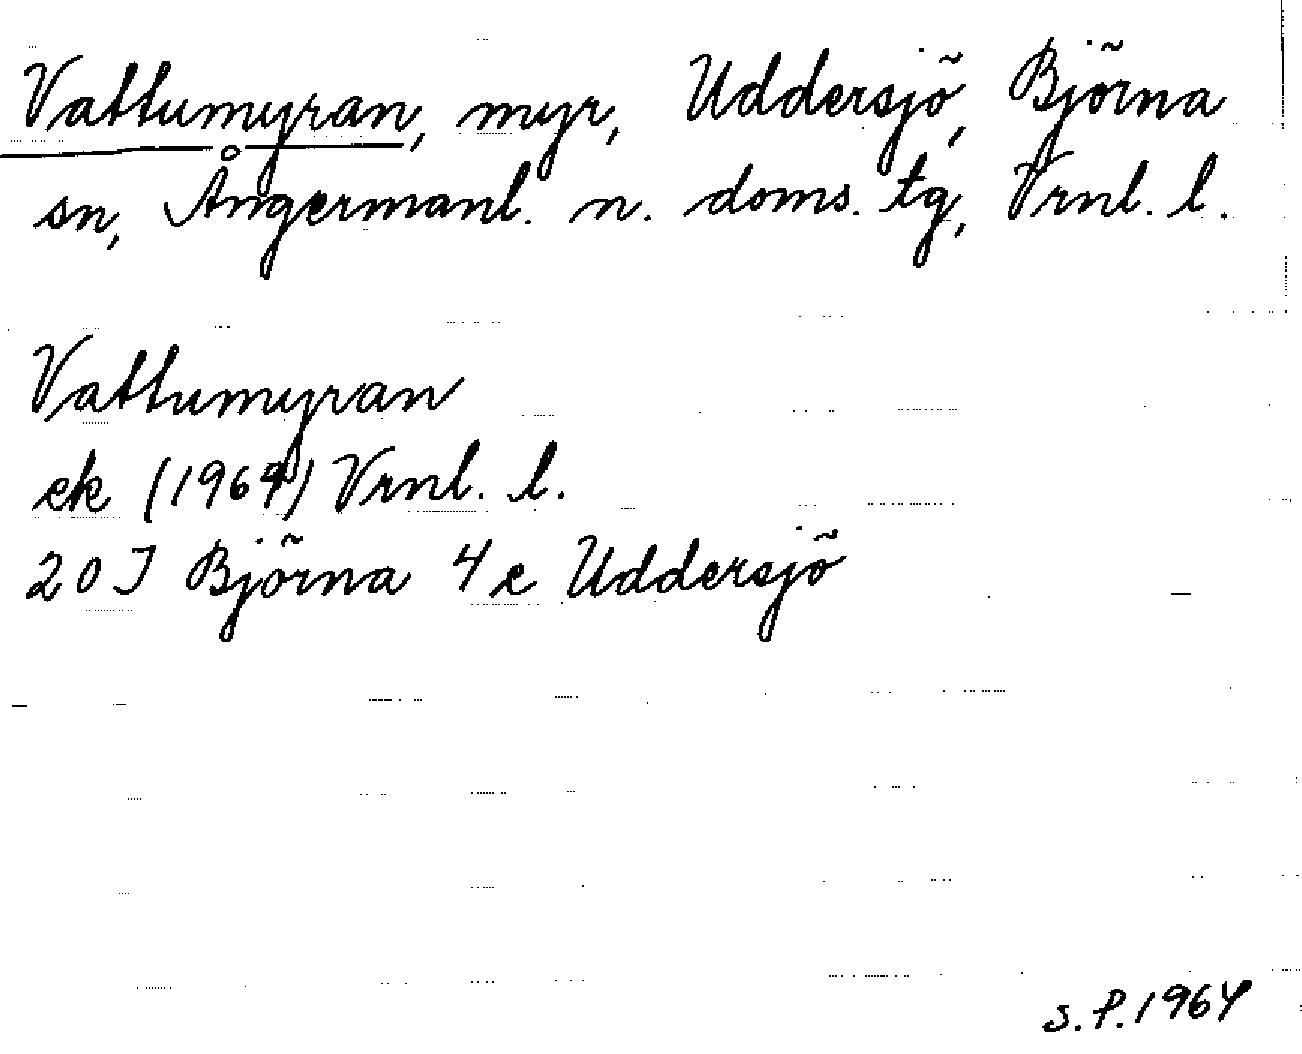 Vattumyran, myr, Uddersjö, Björna
sn, Ångermanl. n. doms. tg, Vrnl. l.
Vattumyran
ek (1964) Vrnl. l.
20 J Björna 4 e Uddersjö
S.P. 1964